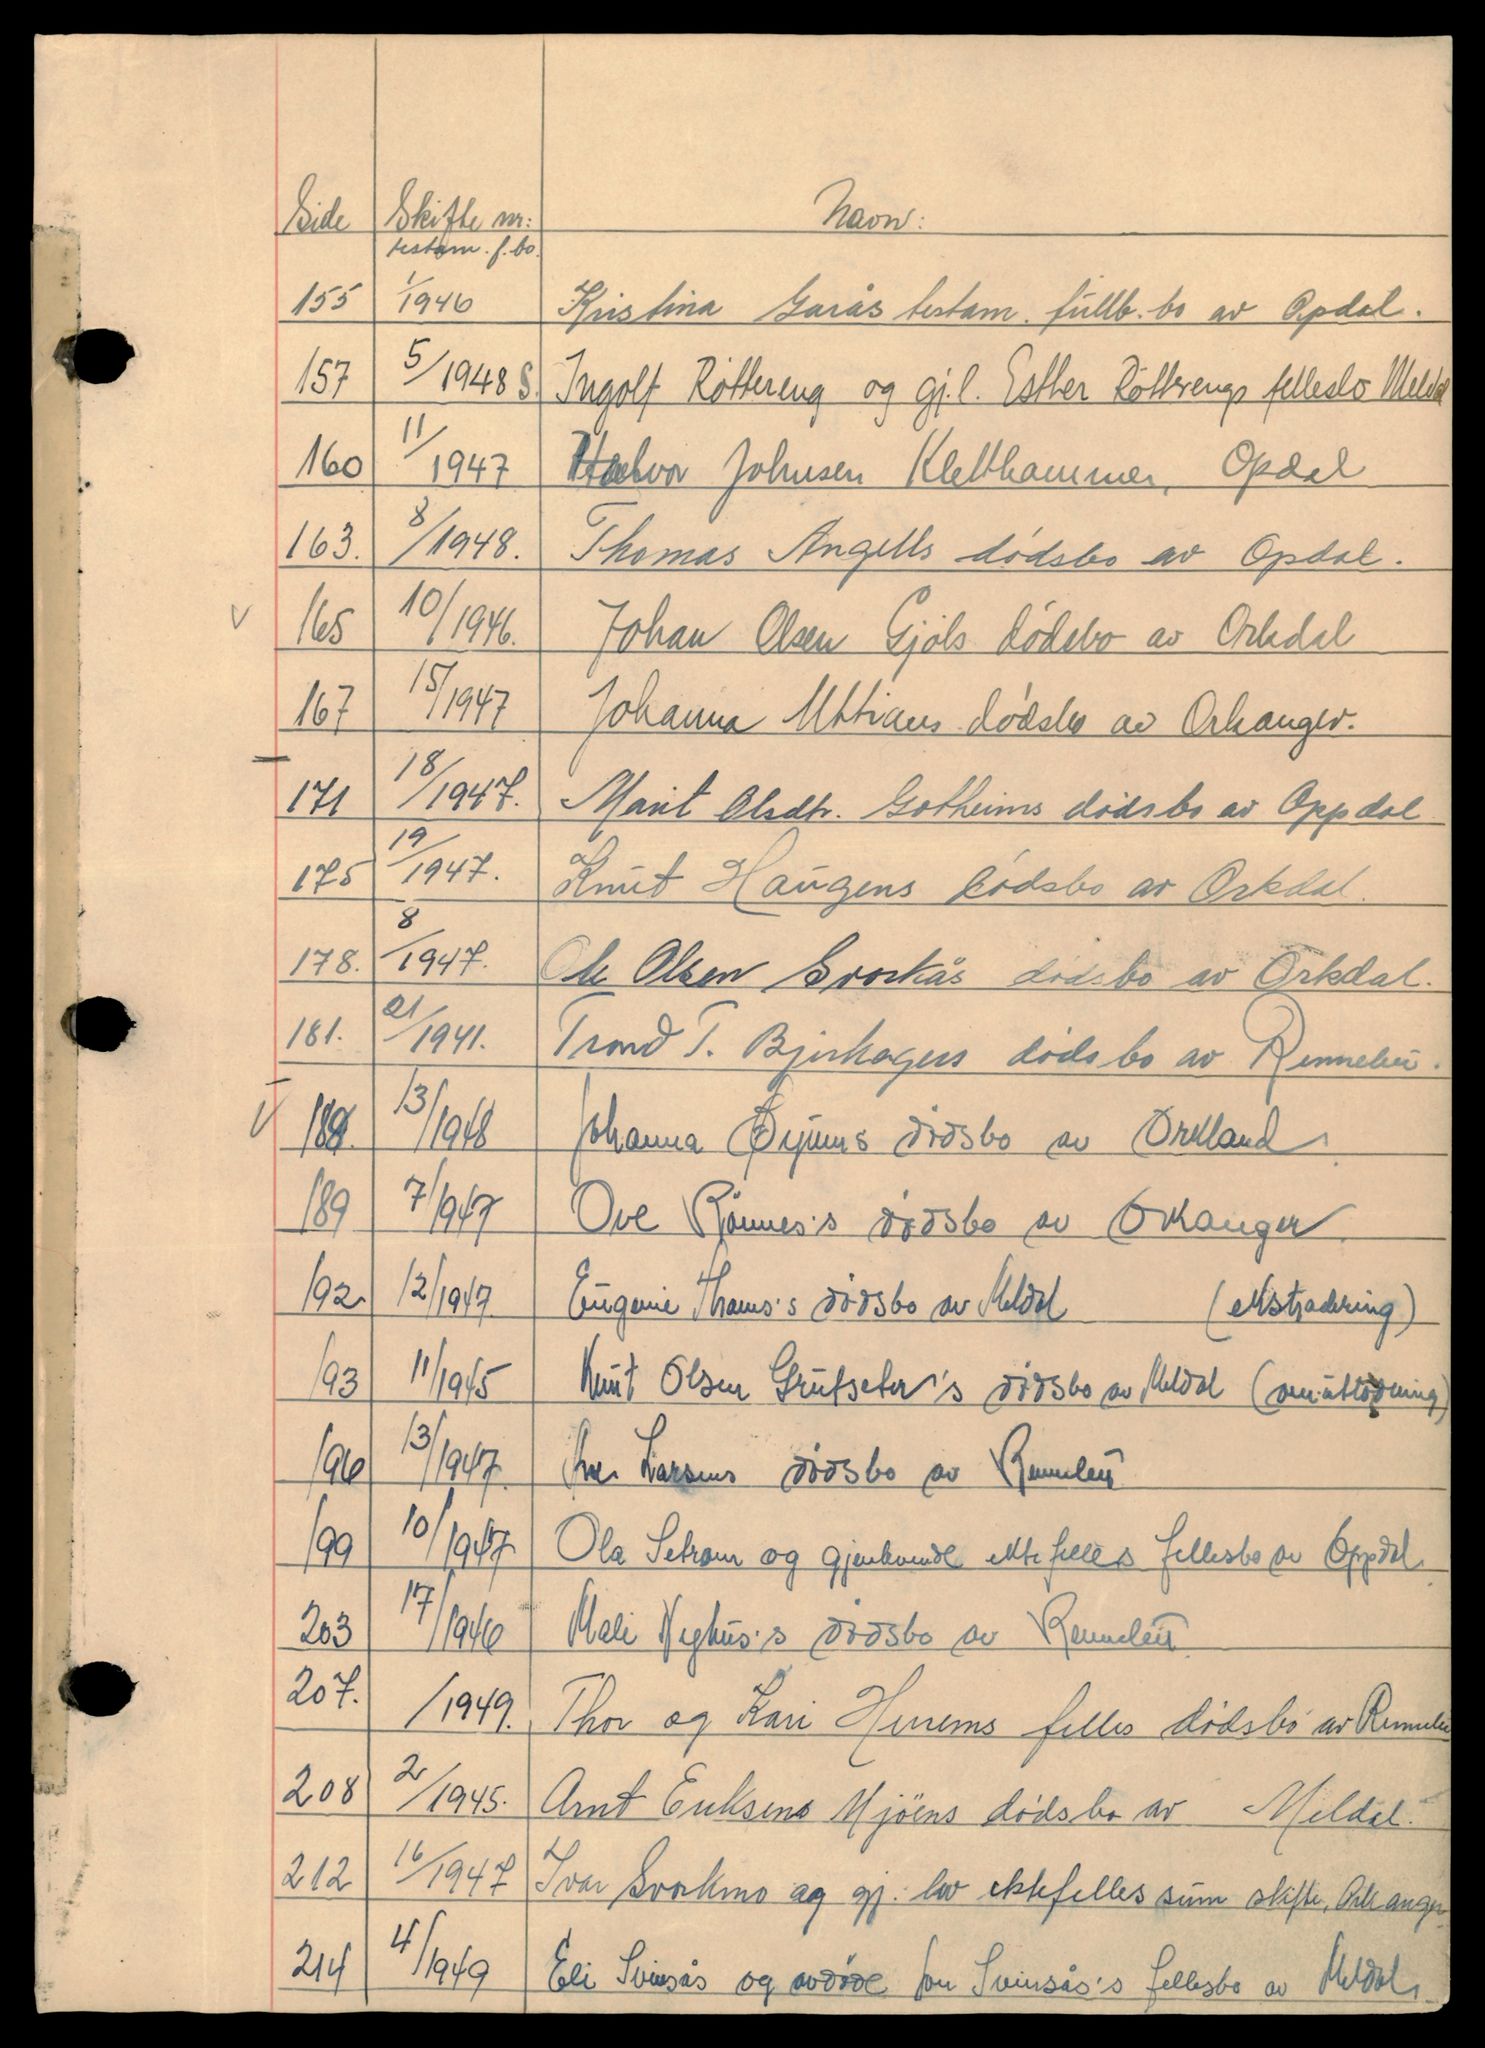 Side Skifte nr: Navn:
testam. f. bo.
155 1/1946 Kristina Garås testam. fullb. bo av Opdal.
157 5/1948 S. Ingolf Röttereng og gj.l. Esther Röttrengs fellesbo Meldal
160 11/1947 Halvor Johnsen Kletthammer, Opdal
163. 8/1948. Thomas Angells dödsbo av Opdal.
V 165 10/1946. Johan Olsen Gjöls dödsbo av Orkdal
167 15/1947 Johanna dödsbo av Orkanger.
171 18/1947. Marit Olsdtr. Gotheims dödsbo av Oppdal
175 19/1947. Knut Haugens dödsbo av Orkdal.
178. 8/1947. Ole Olsen Svorkås dödsbo av Orkdal.
181. 21/1941. Trond T. Bjerkagers dödsbo av Rennebu.
V 13/1948 Johanna dödsbo av Orkland
189 7/1947 Ove Rönnes's dödsbo av Orkanger
192 12/1947 Eugenie Thams's dödsbo av Meldal (ekstradering)
193 11/1945 Knut Olsen Grutseter's dödsbo av Meldal (omutlodning)
196 13/1947 Larsens dödsbo av Rennebu
199 10/1947 Ola Setrom og gjenlevende ektefelles fellesbo av Oppdal
203 17/1946 Mali dödsbo av Rennebu
207. /1949. Thor og Kari Herrems felles dödsbo av Rennebu
208 2/1945. Arnt Eriksens Mjöens dödsbo av Meldal.
212 16/1947 Ivar Svorkmo og gj. lev ektefelles sum skifte, Orkanger
214 4/1949 Eli Svinsås og avdöde Jon Svinsås's fellesbo av Meldal.